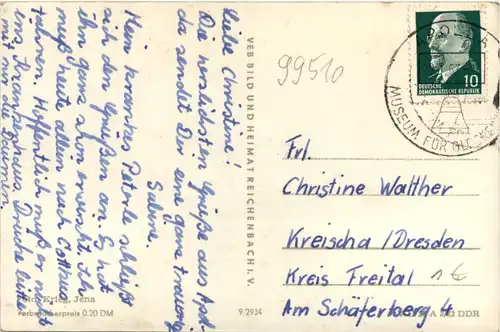 Liebe Christine!
Die herzlichsten Grüße aus Apol-
da sendet Dir eine ganz traurige
Sabine.
Mein krankes Peterle schließt
sich den Grüßen an. Es hat
ihn ganz schön erwischt. Ich
muß heute allein nach Cottbus
fahren. Hoffentlich muß er nicht
ins Krankenhaus. Drücke bitte
mit mir die Daumen.
Foto: Krieg, Jena
Verbraucherpreis 0.20 DM
VEB BILD UND HEIMAT REICHENBACH I. V.
9.2934
99510
DEUTSCHE
DEMOKRATISCHE REPUBLIK
10
MUSEUM FÜR
Frl.
Christine Walther
Kreischa/Dresden
Kreis Freital
1 €
Am Schäferberg 4
DDR